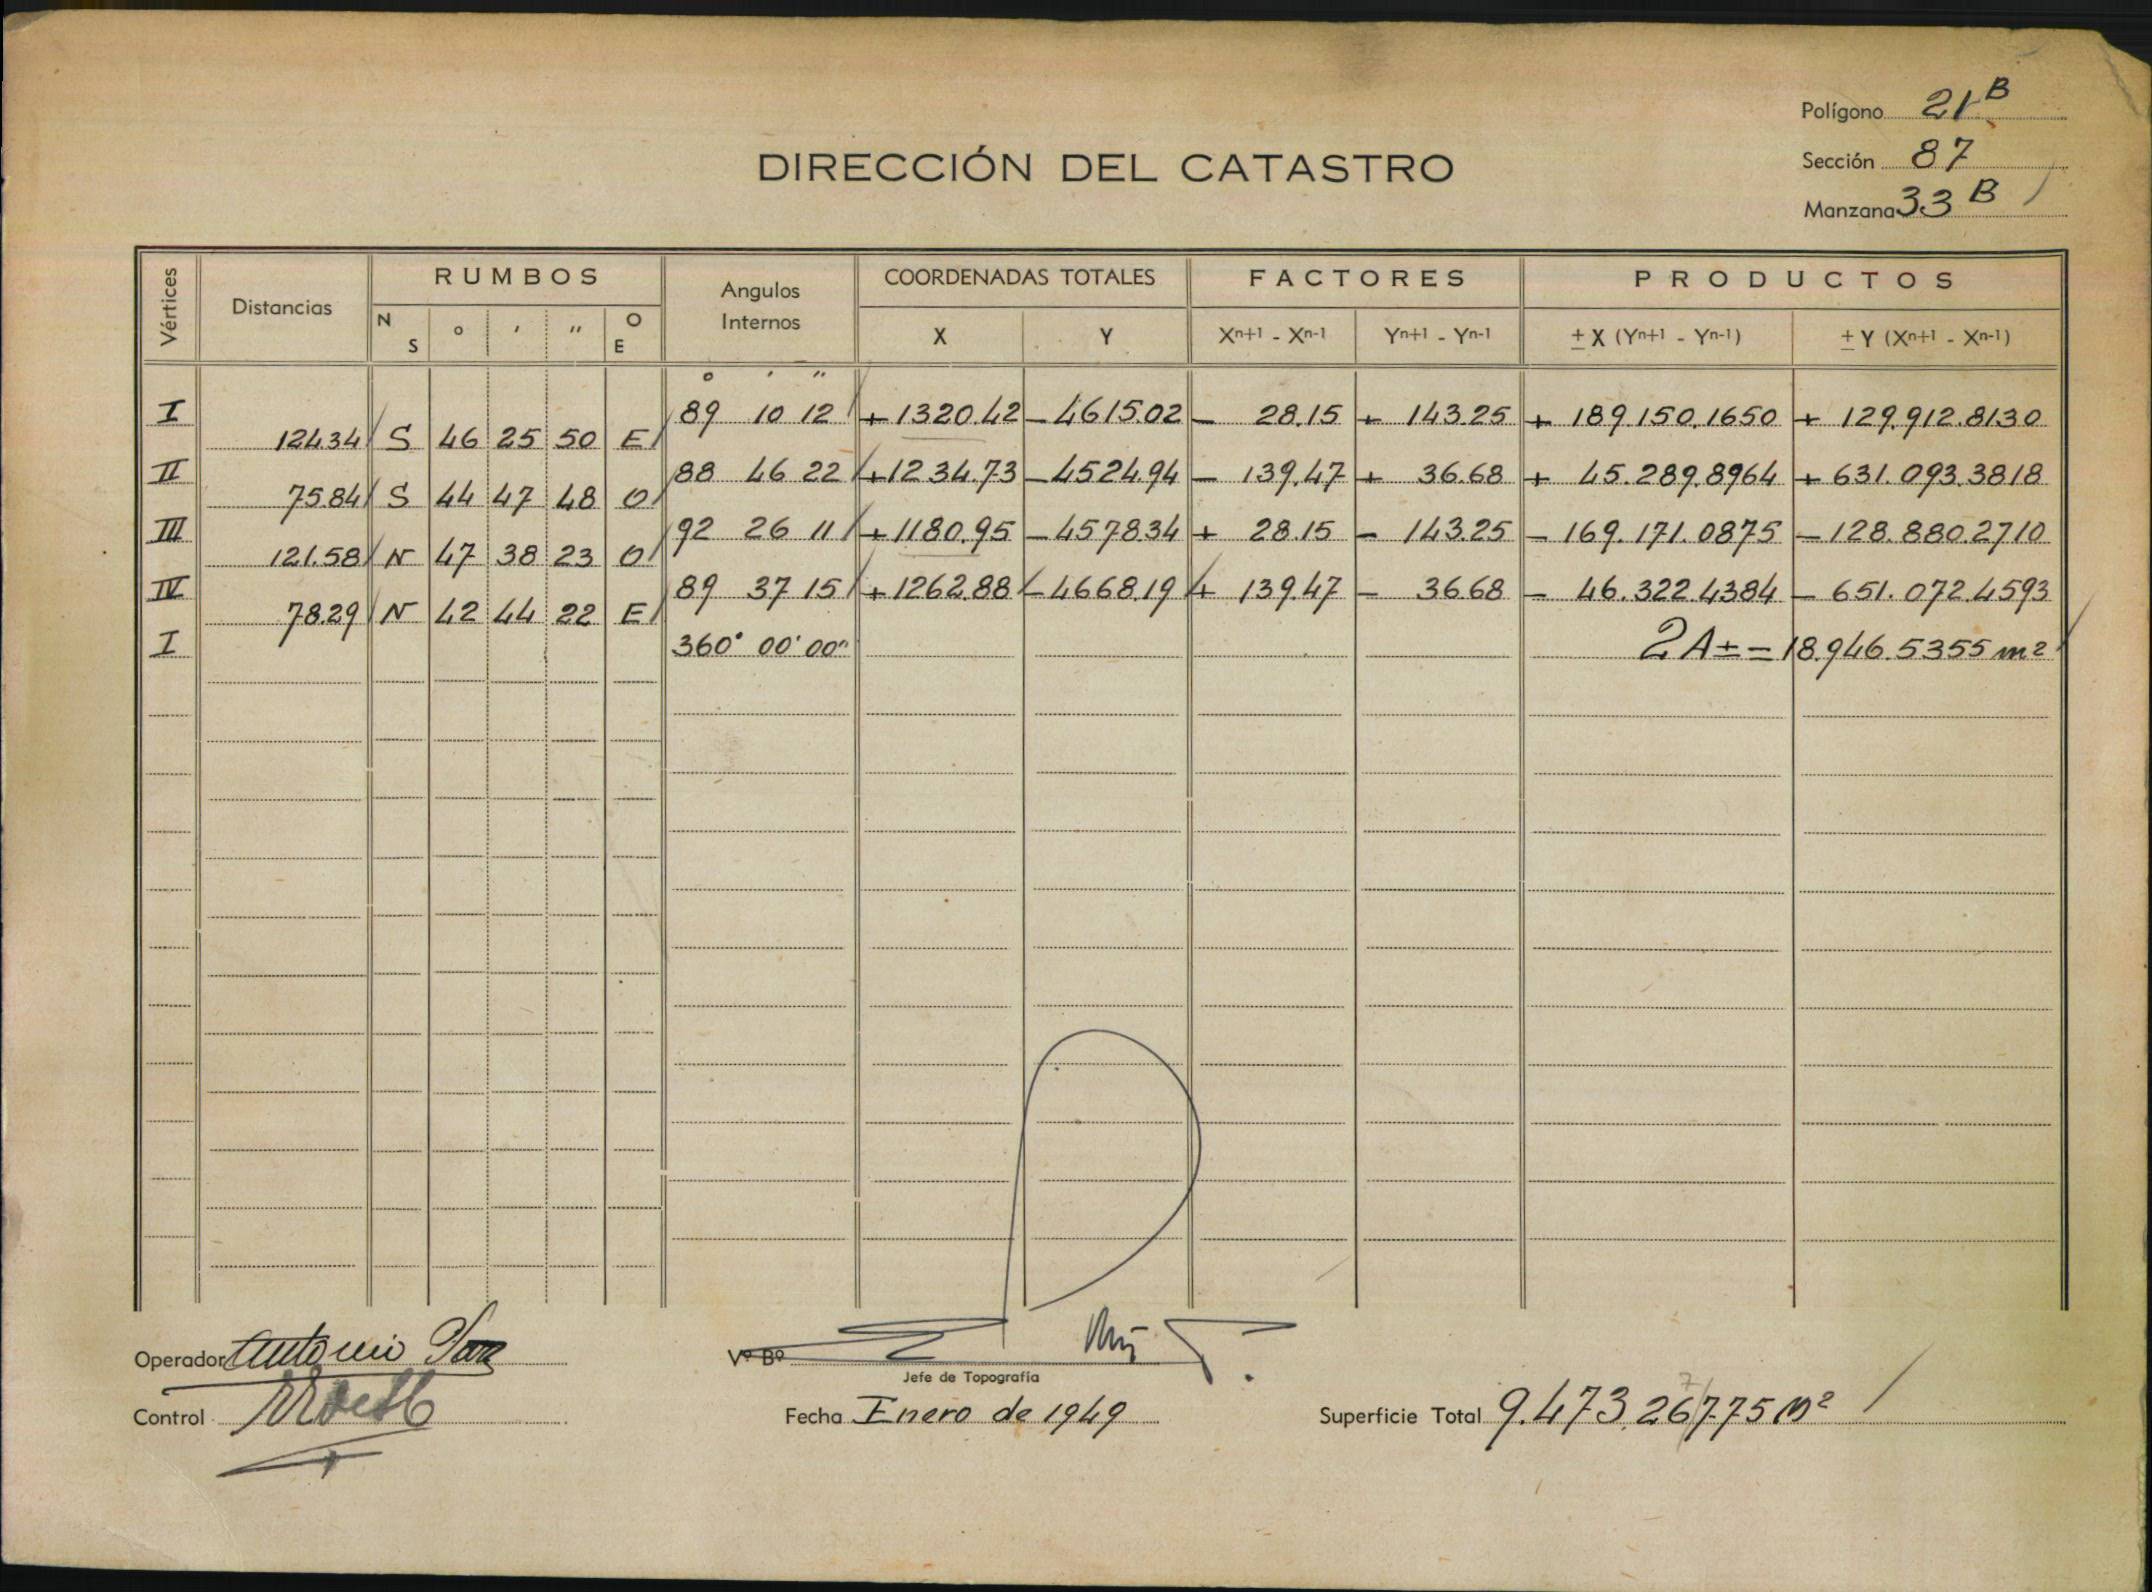 Polígono 21 B
Sección 87
Manzana 33 B
DIRECCIÓN DEL CATASTRO
Vértices Distancias RUMBOS Angulos Internos COORDENADAS TOTALES FACTORES PRODUCTOS
N S ° ' " O E X Y Xn+1 - Xn-1 Yn+1 - Yn-1 ± X (Yn+1 - Yn-1) ± Y (Xn+1 - Xn-1)
° ' "
I 89 10 12 + 1320.42 - 4615.02 - 28.15 + 143.25 + 189.150.1650 + 129.912.8130
124.34 S 46 25 50 E
II 88 46 22 + 1234.73 - 4524.94 - 139.47 + 36.68 + 45.289.8964 + 631.093.3818
75.84 S 44 47 48 O
III 92 26 11 + 1180.95 - 4578.34 + 28.15 - 143.25 - 169.171.0875 - 128.880.2710
121.58 N 47 38 23 O
IV 89 37 15 + 1262.88 - 4668.19 + 139.47 - 36.68 - 46.322.4384 - 651.072.4593
78.29 N 42 44 22 E
I 360° 00' 00" 2A ± = 18.946.5355 m2
Operador Antonio
Vº Bº
Jefe de Topografía
Control
Fecha Enero de 1949
Superficie Total 9.473.26775 m²